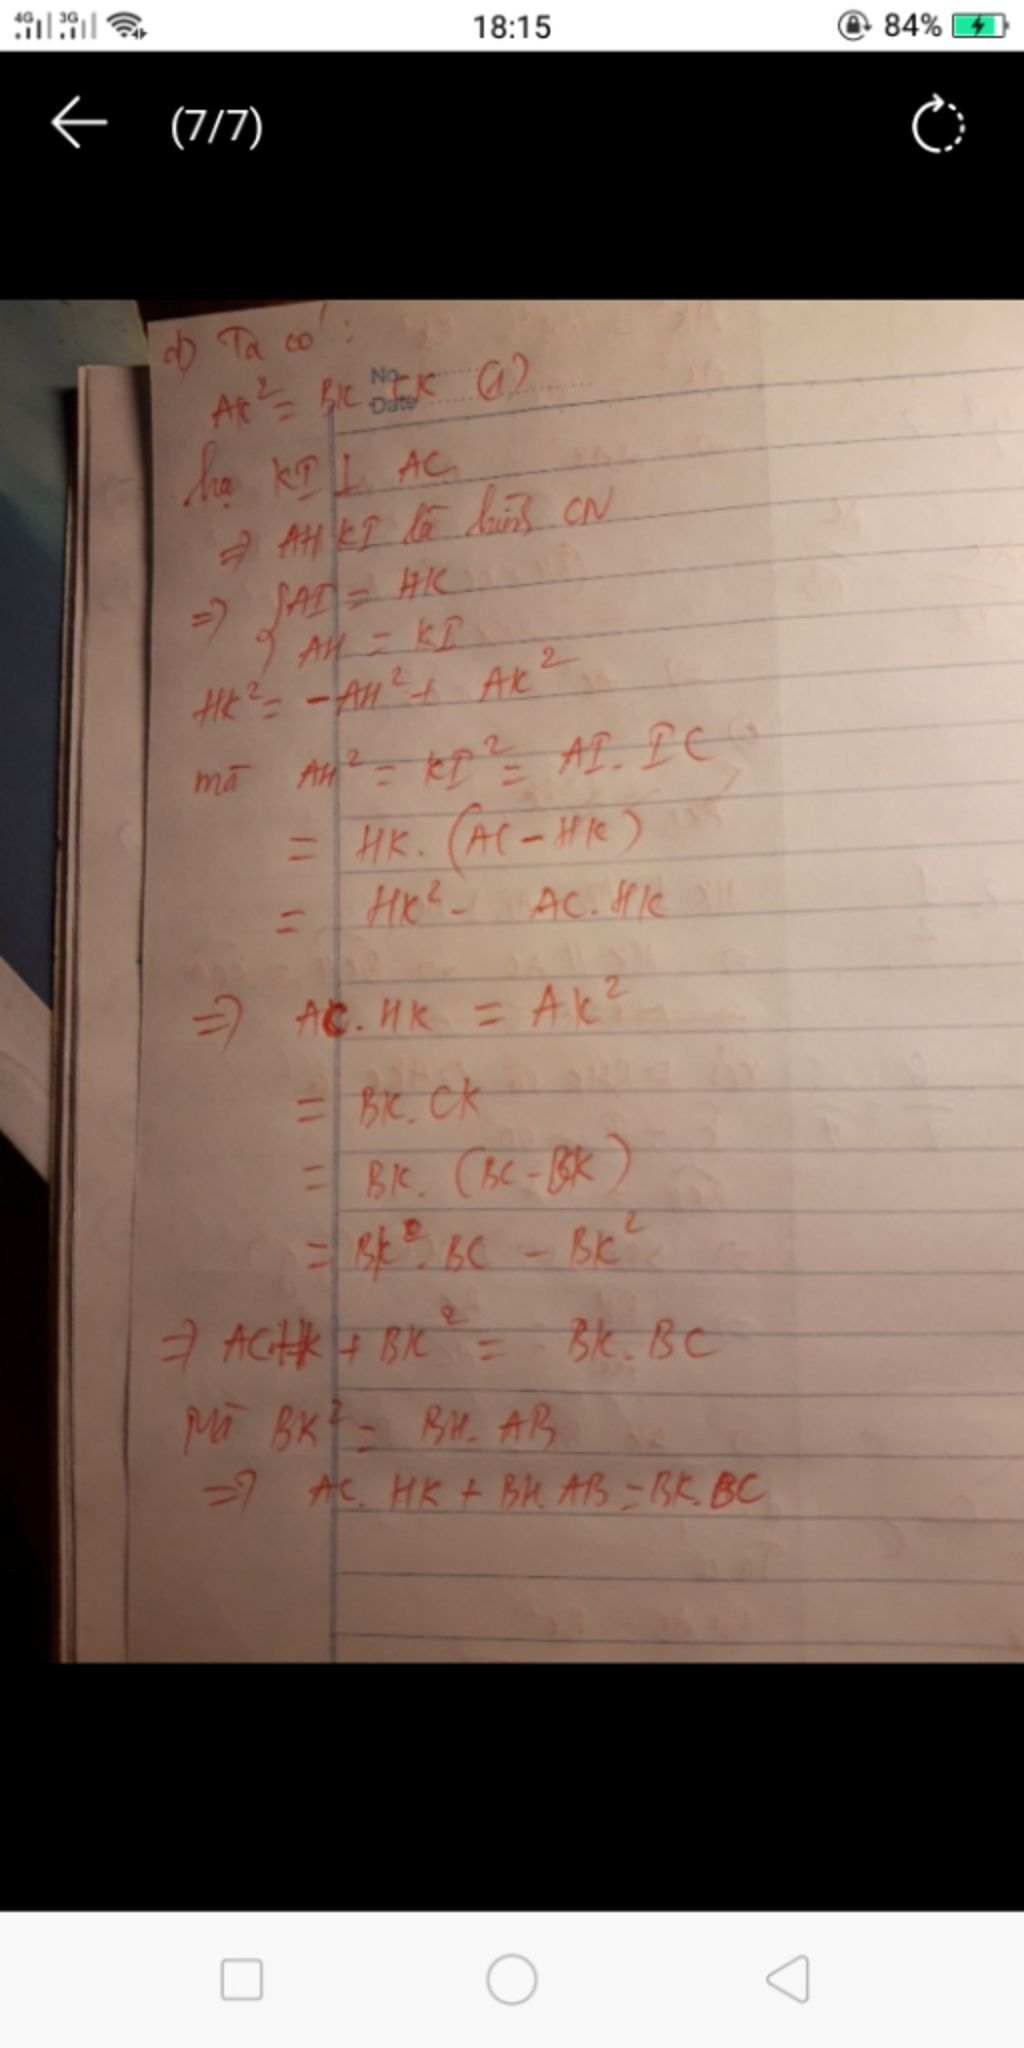 4G 3G 18:15 84%
(7/7)
d) Ta có:
No
Date
AK² = BK.CK (1)
hạ KI ⊥ AC
=> AHKI là hình CN
=> { AI = HK
AH = KI
HK² = -AH² + AK²
mà AH² = KI² = AI. IC
= HK. (AC - HK)
= HK² - AC. HK
=> AC. HK = AK²
= BK. CK
= BK. (BC - BK)
= BK. BC - BK²
=> AC.HK + BK² = BK. BC
Mà BK² = BH. AB
=> AC. HK + BH. AB = BK. BC